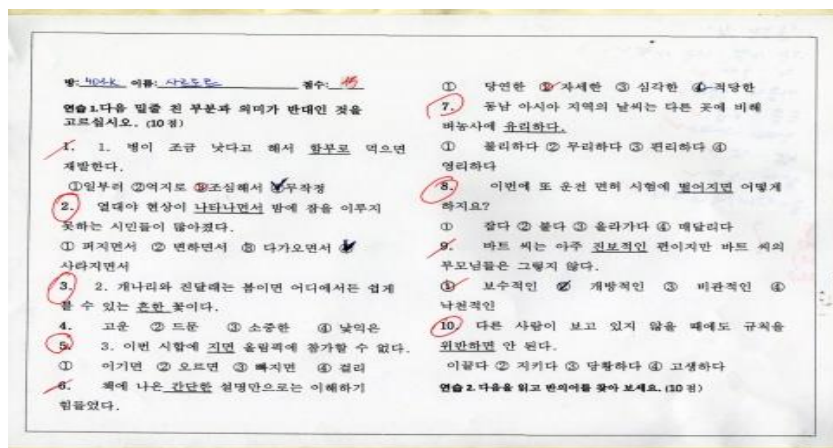 방: 401k 이름: 사르도르 점수:
연습 1.다음 밑줄 친 부분과 의미가 반대인 것을
고르십시오. (10점)
1. 1. 병이 조금 낫다고 해서 함부로 먹으면
재발한다.
①일부러 ②억지로 ③조심해서 ④무작정
2. 열대야 현상이 나타나면서 밤에 잠을 이루지
못하는 시민들이 많아졌다.
① 퍼지면서 ② 변하면서 ③ 다가오면서 ④
사라지면서
3. 2. 개나리와 진달래는 봄이면 어디에서든 쉽게
볼 수 있는 흔한 꽃이다.
4. 고운 ② 드문 ③ 소중한 ④ 낯익은
5. 3. 이번 시합에 지면 올림픽에 참가할 수 없다.
① 이기면 ② 오르면 ③ 빠지면 ④ 걸리
6. 책에 나온 간단한 설명만으로는 이해하기
힘들었다.
① 당연한 ② 자세한 ③ 심각한 ④ 적당한
7. 동남 아시아 지역의 날씨는 다른 곳에 비해
벼농사에 유리하다.
① 불리하다 ② 무리하다 ③ 편리하다 ④
영리하다
8. 이번에 또 운전 면허 시험에 떨어지면 어떻게
하지요?
① 잡다 ② 붙다 ③ 올라가다 ④ 매달리다
9. 바트 씨는 아주 진보적인 편이지만 바트 씨의
부모님들은 그렇지 않다.
① 보수적인 ② 개방적인 ③ 비관적인 ④
낙천적인
10. 다른 사람이 보고 있지 않을 때에도 규칙을
위반하면 안 된다.
이끌다 ② 지키다 ③ 당황하다 ④ 고생하다
연습 2.다음을 읽고 반의어를 찾아 보세요. (10점)